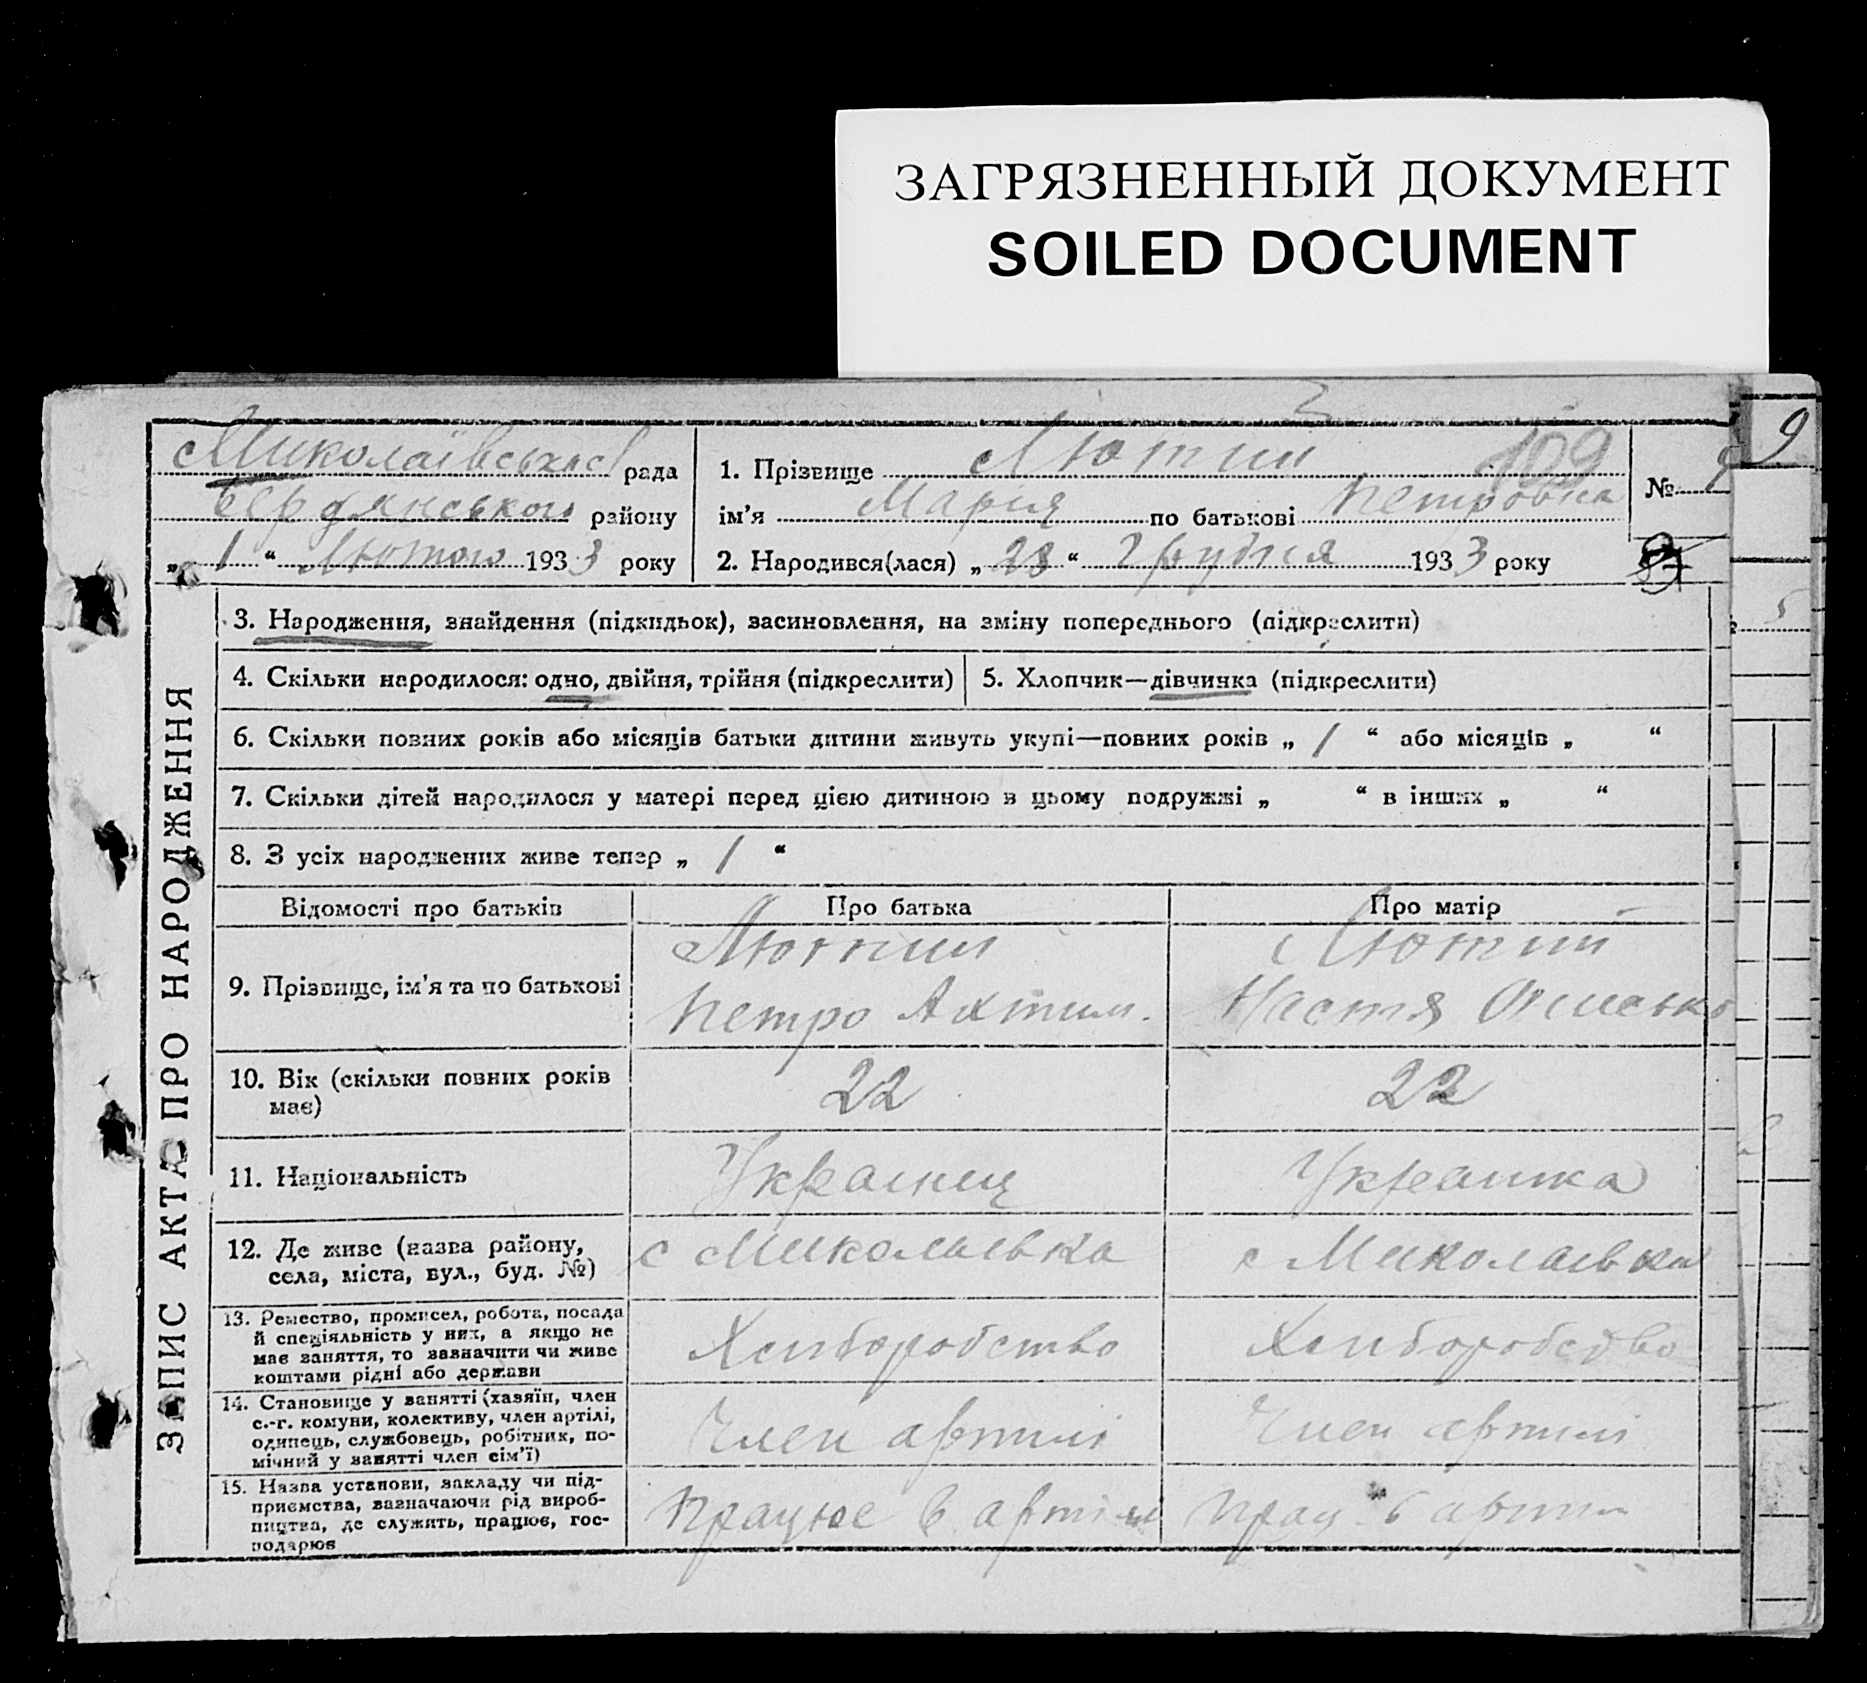 ЗАГРЯЗНЕННЫЙ ДОКУМЕНТ
SOILED DOCUMENT
9
Миколаївська рада
Бердянського району
„ 1 “ Лютого 1933 року
1. Прізвище Лютий 109
ім’я Марія по батькові Петровна
2. Народився(лася) „ 28 “ Грудня 1933 року
№
ЗАПИС АКТА ПРО НАРОДЖЕННЯ
3. Народження, знайдення (підкидьок), засиновлення, на зміну попереднього (підкреслити)
4. Скільки народилося: одно, двійня, трійня (підкреслити)
5. Хлопчик—дівчинка (підкреслити)
6. Скільки повних років або місяців батьки дитини живуть укупі—повних років „ 1 “ або місяців „ “
7. Скільки дітей народилося у матері перед цією дитиною в цьому подружжі „ “ в інших „ “
8. З усіх народжених живе тепер „ 1 “
Відомості про батьків
Про батька
Про матір
9. Прізвище, ім’я та по батькові
Лютий
Петро
Лютий
Настя
10. Вік (скільки повних років
має)
22
22
11. Національність
Украинец
Украинка
12. Де живе (назва району,
села, міста, вул., буд. №)
с Миколаївка
с Миколаївка
13. Ремество, промисел, робота, посада
й спеціяльність у них, а якщо не
має заняття, то зазначити чи живе
коштами рідні або держави
Хліборобство
Хліборобство
14. Становище у занятті (хазяїн, член
с.-г. комуни, колективу, член артілі,
одинець, службовець, робітник, по-
мічний у занятті член сім’ї)
Член артілі
Член артілі
15. Назва установи, закладу чи під-
приємства, зазначаючи рід вироб-
ництва, де служить, працює, гос-
подарює
Працює в артілі
Прац в артілі
5